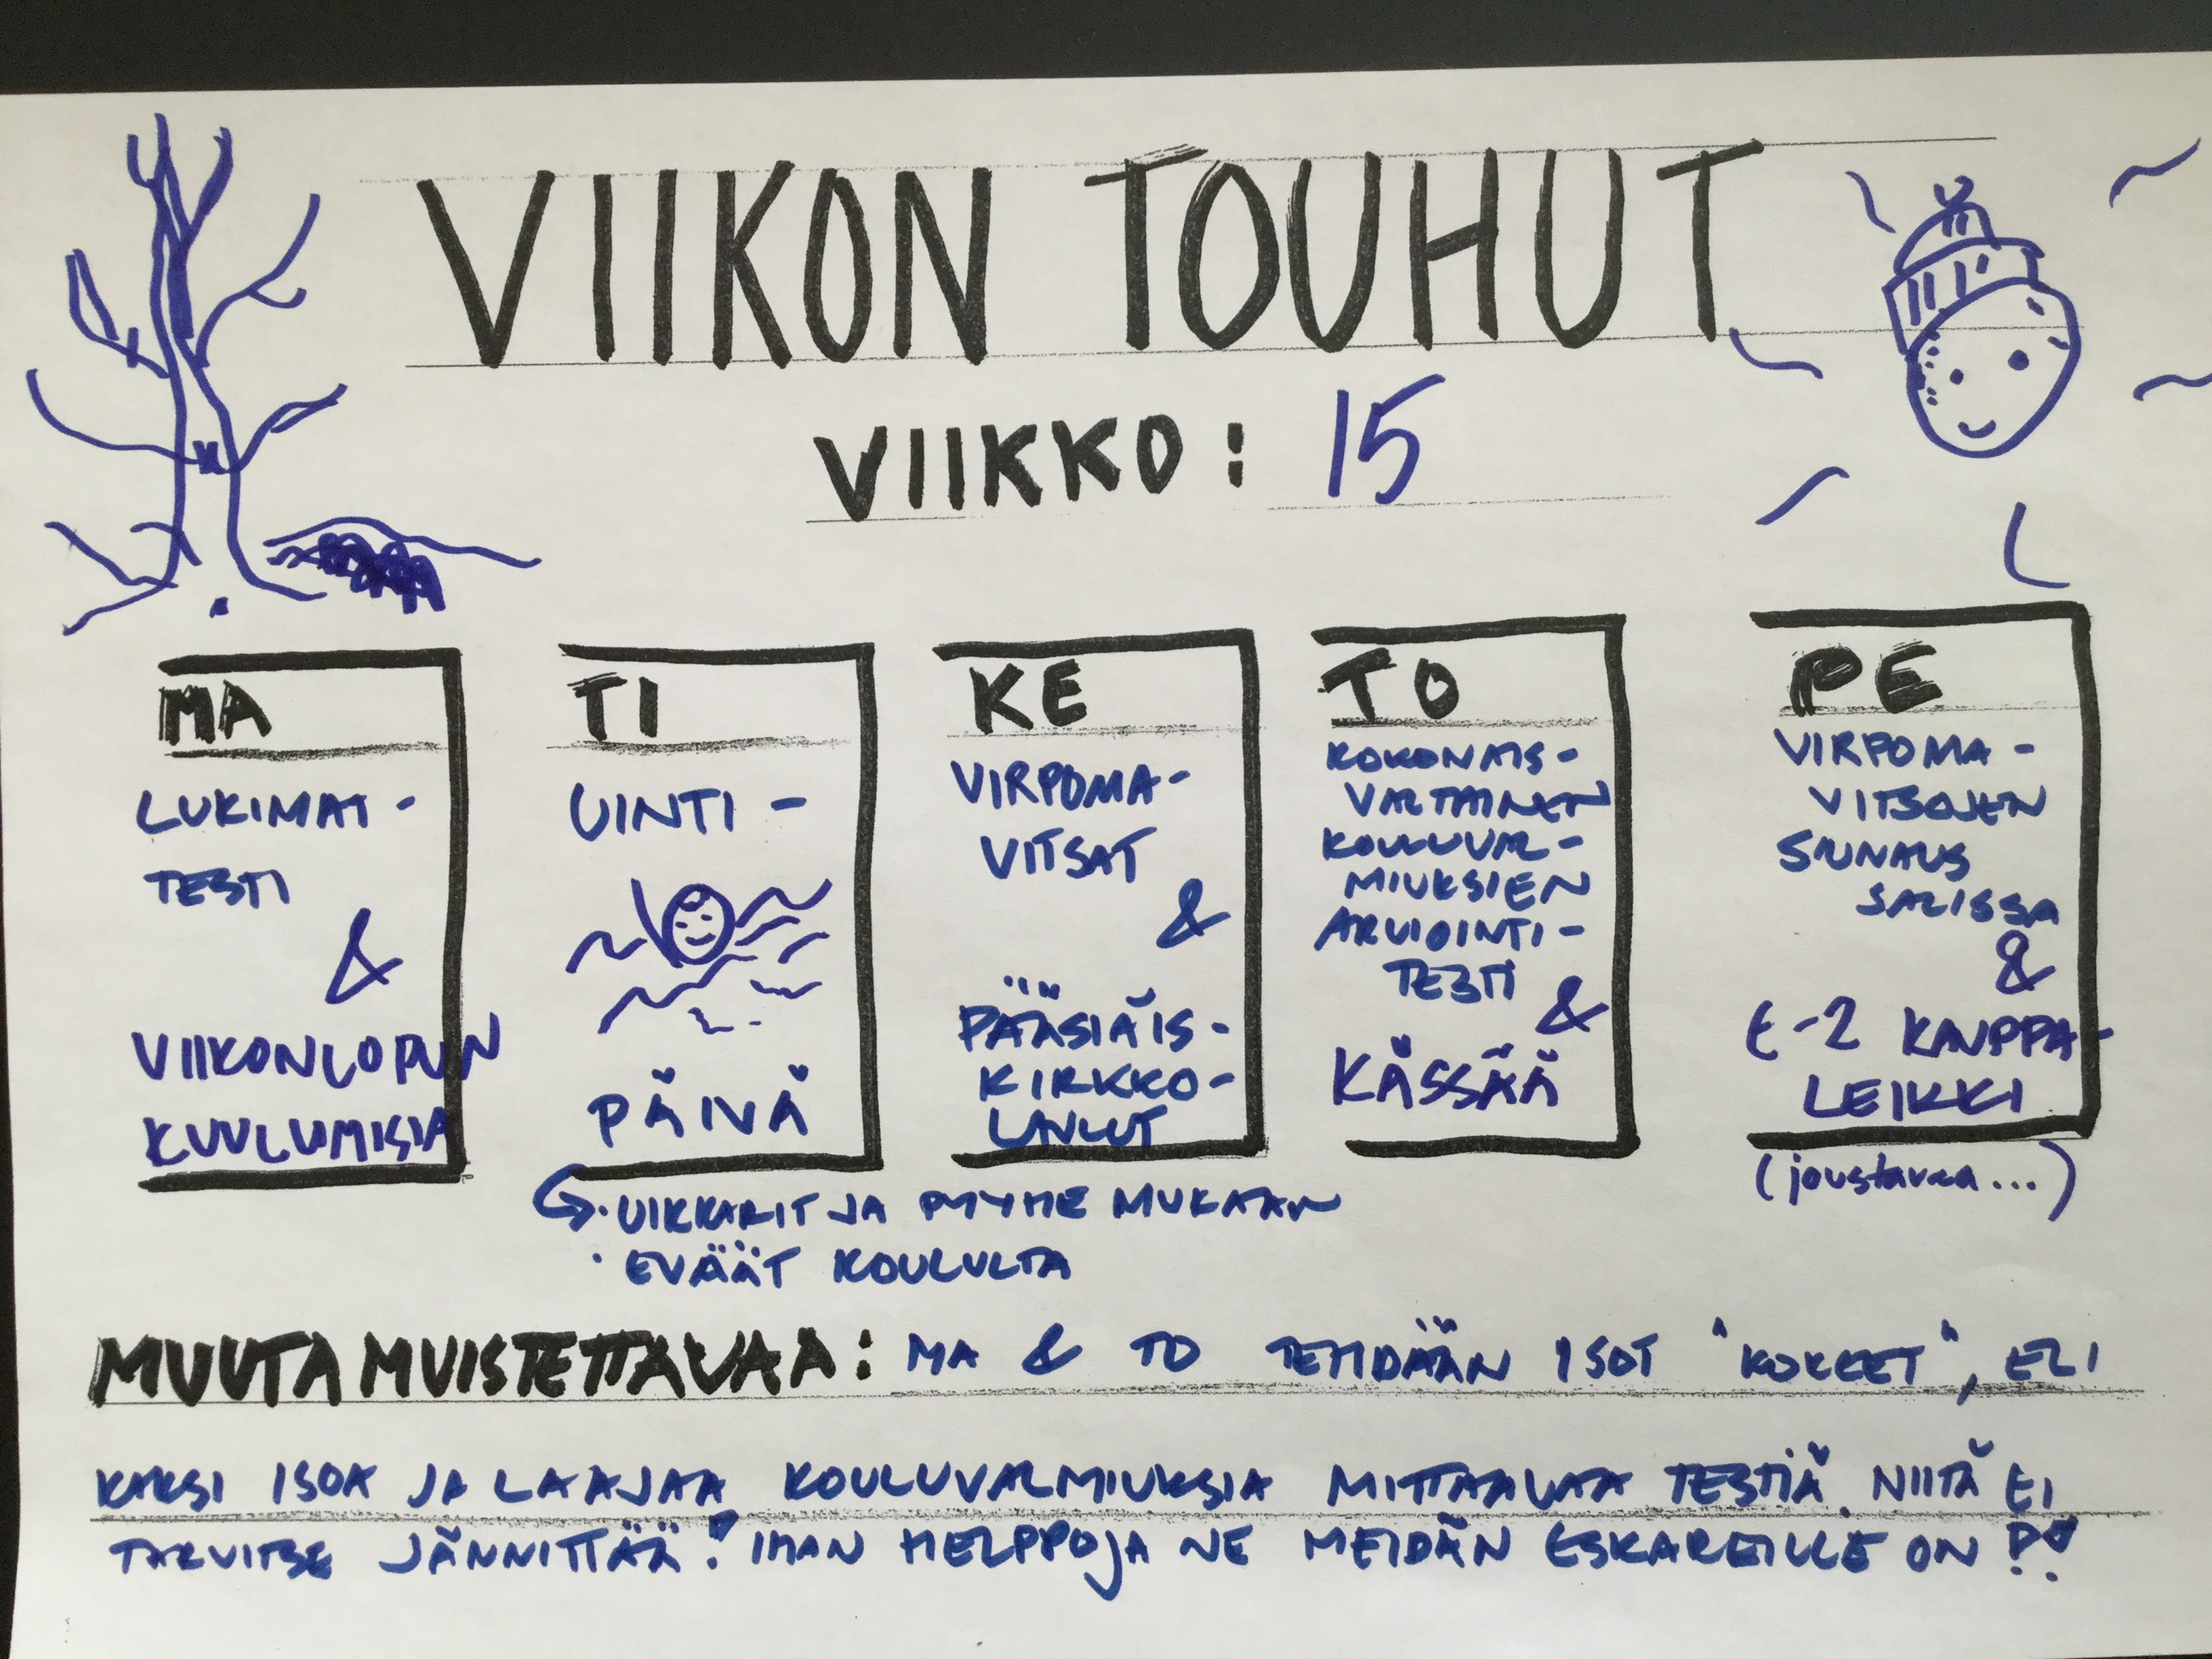 VIIKON TOUHUT
VIIKKO: 15
MA
LUKIMAT-
TESTI
&
VIIKONLOPUN
KUULUMISIA
TI
UINTI-
PÄIVÄ
KE
VIRPOMA-
VITSAT
&
PÄÄSIÄIS-
KIRKKO-
LAULUT
TO
KOKONAIS-
VALTAINEN
KOULUVAL-
MIUKSIEN
ARVIOINTI-
TESTI
&
KÄSSÄÄ
PE
VIRPOMA-
VITSOJEN
SIUNAUS
SALISSA
&
E-2 KAUPPA-
LEIKKI
(joustavaa...)
· UIKKARIT JA PYYHE MUKAAN
· EVÄÄT KOULULTA
MUUTA MUISTETTAVAA: MA & TO TEHDÄÄN ISOT "KOKEET", ELI
KAKSI ISOA JA LAAJAA KOULUVALMIUKSIA MITTAAVAA TESTIÄ. NIITÄ EI
TARVITSE JÄNNITTÄÄ! IHAN HELPPOJA NE MEIDÄN ESKAREILLE ON!!